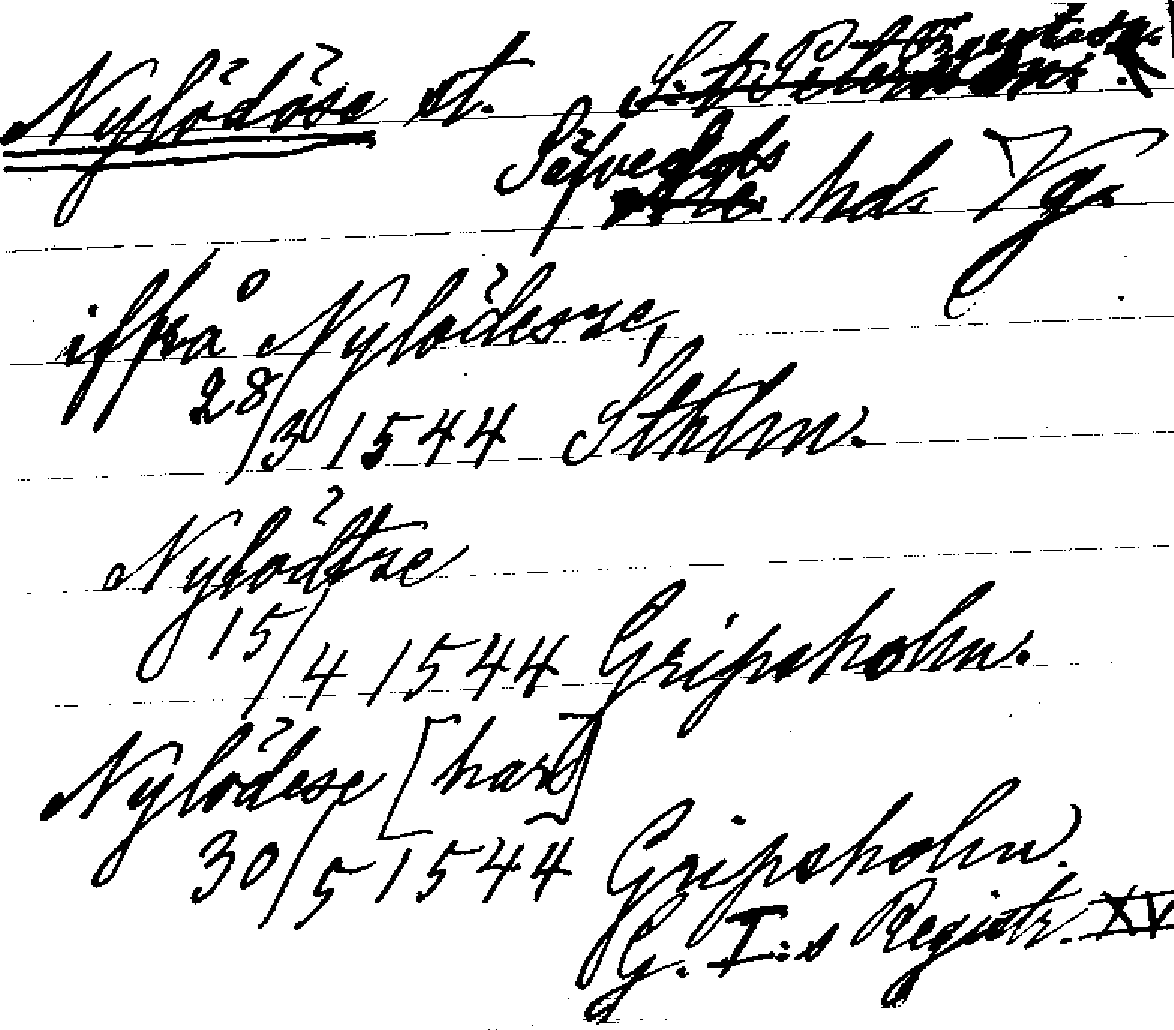 Nylödöse st.
Säfvedals hds Vg.
iffrå Nylödesze,
28/3 1544 Sthlm.
Nylödtze
15/4 1544 Gripsholm.
Nylödese [hand]
30/5 1544 Gripsholm.
G. I:s Registr. XV